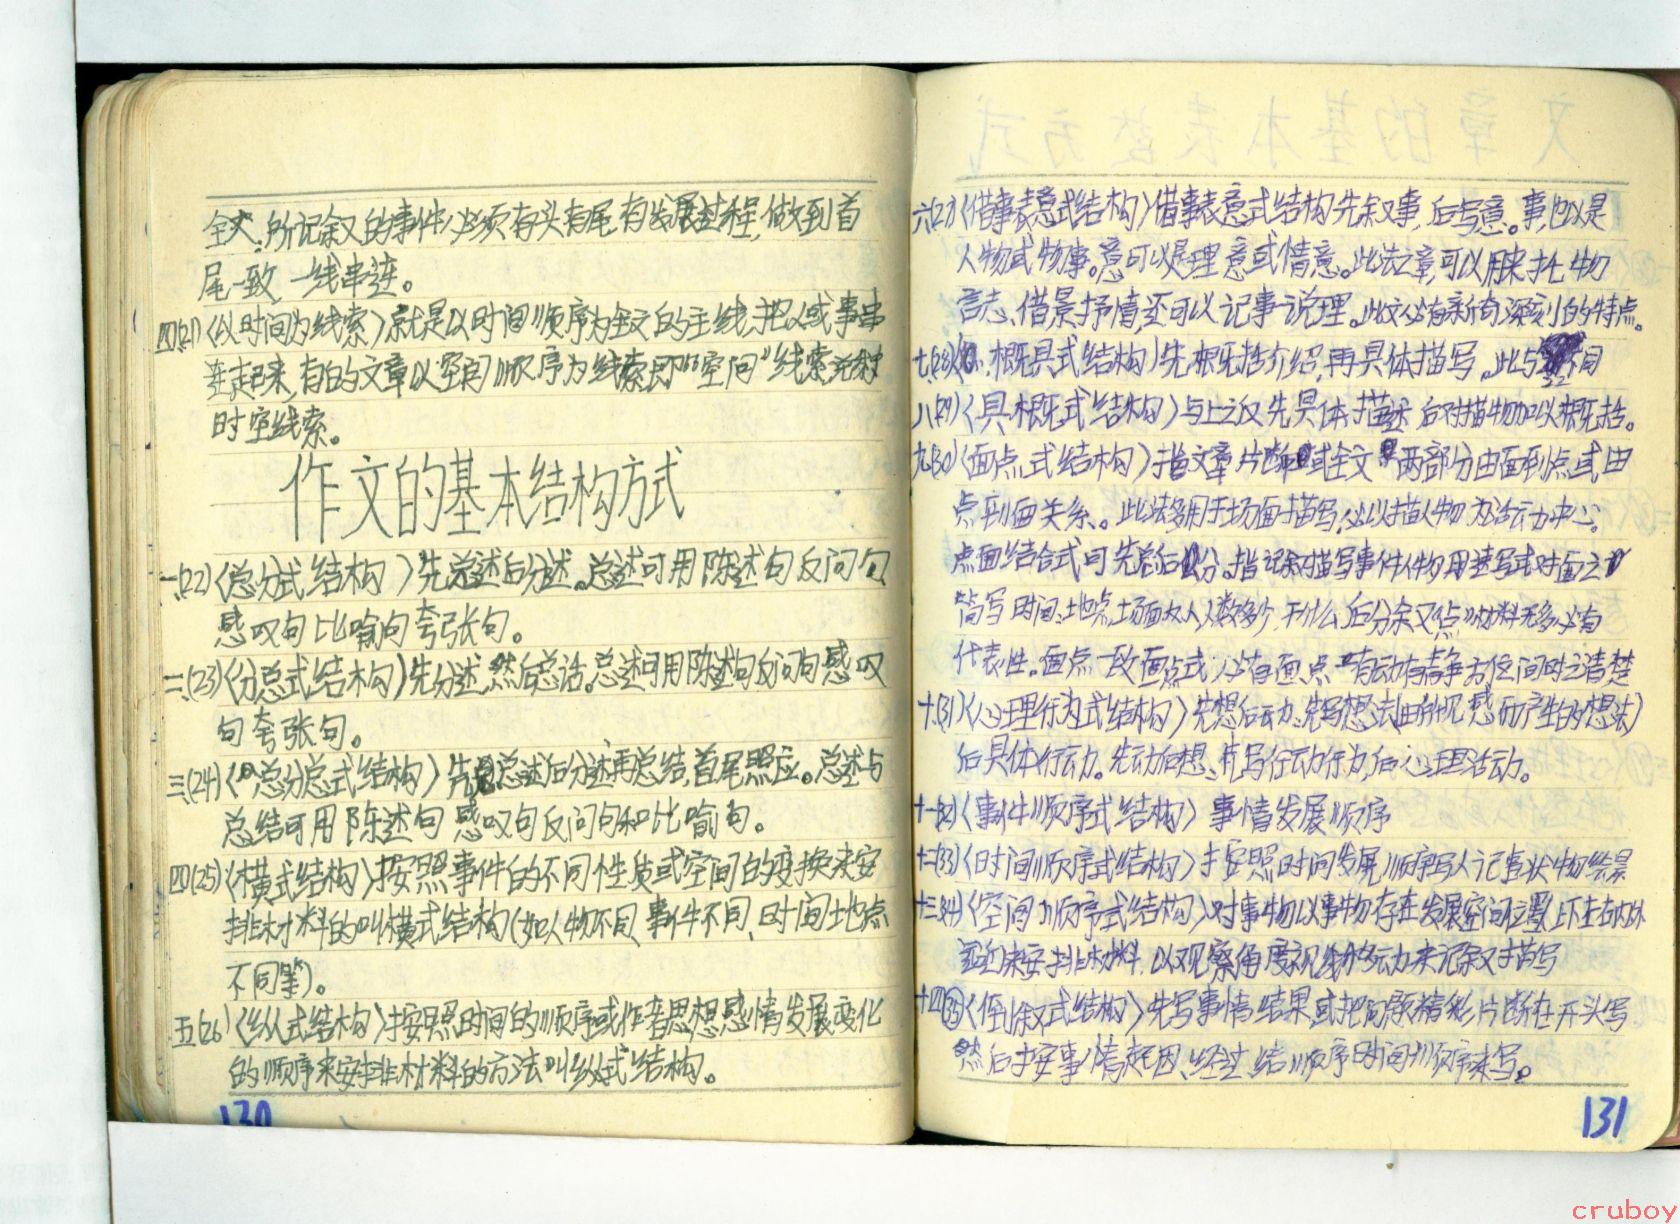 全文,所记叙的事件必须有头有尾,有发展过程,做到首
尾一致,一线串连。
四.(21)〈以时间为线索〉就是以时间顺序为全文的主线,把人或事串
连起来,有的文章以空间顺序为线索即"空间"线索
时空线索。
作文的基本结构方式
一.(22)〈总分式结构〉先总述后分述。总述可用陈述句反问句
感叹句比喻句夸张句。
二.(23)〈分总式结构〉先分述,然后总话。总述可用陈述句反问句感叹
句夸张句。
三.(24)〈总分总式结构〉先总述后分述再总结,首尾照应。总述与
总结可用陈述句感叹句反问句和比喻句。
四(25)〈横式结构〉按照事件的不同性质或空间的变换来安
排材料的叫横式结构(如人物不同、事件不同、时间地点
不同等)。
五(26〈纵式结构〉按照时间的顺序或作者思想感情发展变化
的顺序来安排材料的方法叫纵式结构。
130
六(27)〈借事表意式结构〉借事表意式结构先叙事,后写意。事,也以是
人物或物事。意可以是理意或情意。此法之章,可以用来托物
言志、借景抒情,还可以记事说理。此文必有新奇深刻的特点。
七.(28)概具式结构〉先概括介绍,再具体描写。此与相
八(29)〈具概式结构〉与上之仅先具体描述后对描物加以概括。
九.(30)〈面点式结构〉指文章片断或全文两部分由面到点或由
点到面关系。此法多用于场面描写,必以描人物为活动中心。
点面结合式可先总后分。指记叙描写事件人物用速写或对面之
简写时间、地点、场面及人人数多少,干什么,后分叙又"点"材料无多必有
代表性。面点一致面点式必有面、点,有动有静方位间时之清楚
十.(31)〈心理行为式结构〉先想后动、先写想法(由所见感而产生的想法)
后具体行动。先动后想、先写行动行为,后心理活动。
十一(32)〈事件顺序式结构〉事情发展顺序
十二(33)〈时间顺序式结构〉按照时间发展顺序写人记事状物绘景
十三(34)〈空间顺序式结构〉对事物以事物存在发展空间位置上下左右内外
远近来安排材料,以观察角度视线移动来记叙描写
十四(35)〈倒叙式结构〉先写事情结果,或把问题精彩片断在开头写
然后按事情起因、经过、结顺序时间顺序来写。
131
cruboy